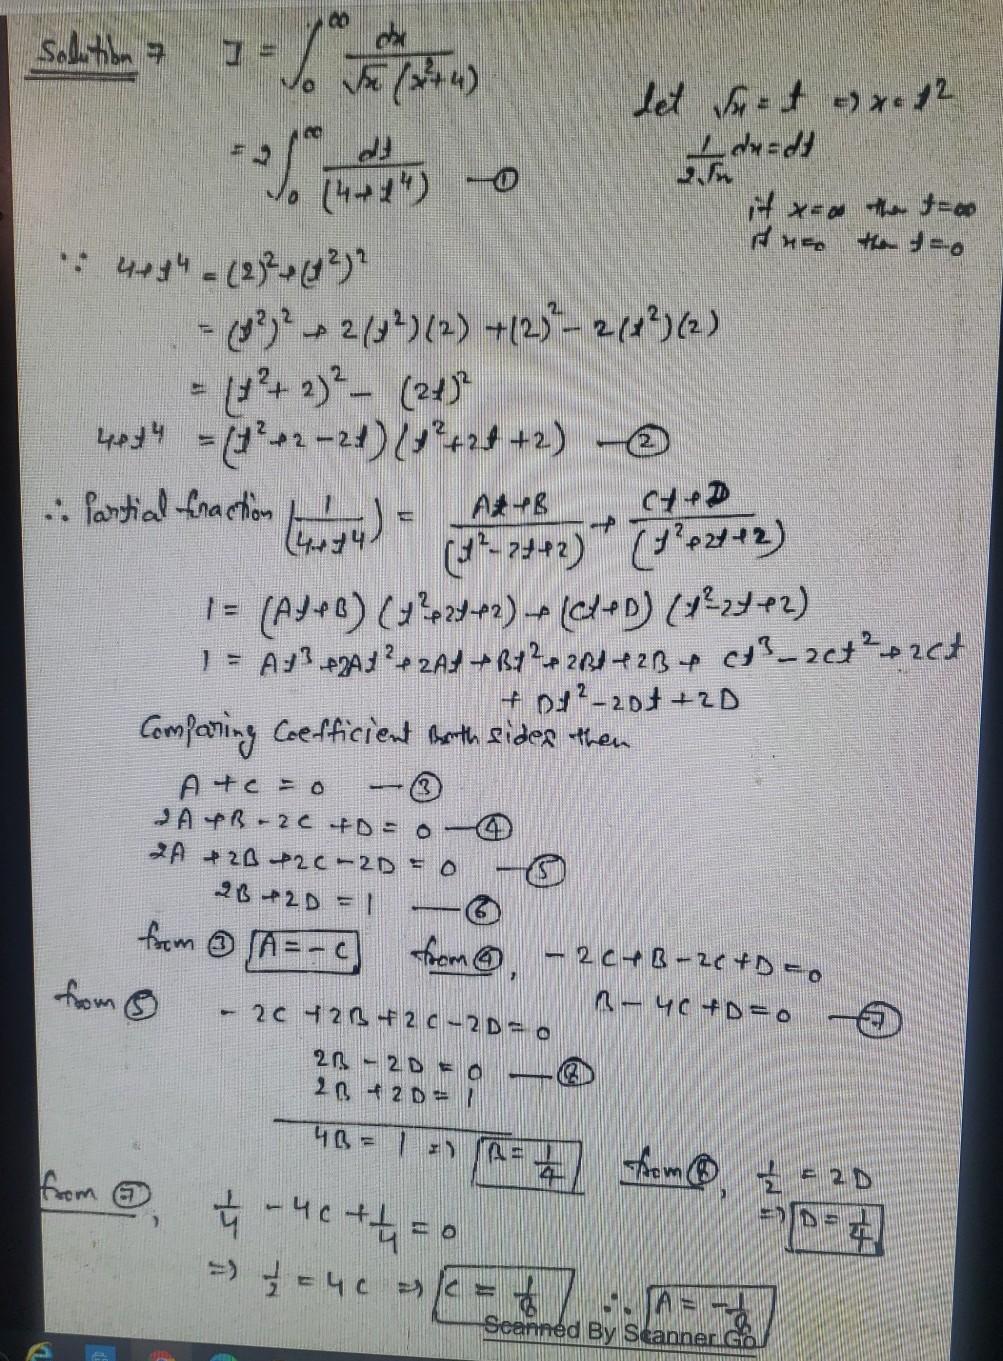 Solution ⇒ I = ∫₀^∞ dx / √x (x²+4)
Let √x = t ⇒ x = t²
= 2∫₀^∞ dt / (4+t⁴) — ①
1/2√x dx = dt
if x=∞ then t=∞
if x=0 then t=0
∵ 4+t⁴ = (2)²+(t²)²
= (t²)² + 2(t²)(2) + (2)² - 2(t²)(2)
= (t²+2)² - (2t)²
4+t⁴ = (t²+2-2t)(t²+2t+2) — ②
∴ Partial fraction (1/4+t⁴) = At+B / (t²-2t+2) + Ct+D / (t²+2t+2)
1 = (At+B)(t²+2t+2) + (Ct+D)(t²-2t+2)
1 = At³+2At²+2At+Bt²+2Bt+2B + Ct³-2Ct²+2Ct
+ Dt²-2Dt+2D
Comparing Coefficient Both sides then
A+C = 0 — ③
2A+B-2C+D = 0 — ④
2A+2B+2C-2D = 0 — ⑤
2B+2D = 1 — ⑥
from ③ A = -C from ④, -2C+B-2C+D=0
B-4C+D=0 — ⑦
from ⑤ -2C+2B+2C-2D=0
2B-2D = 0 — ⑧
2B+2D = 1
4B = 1 ⇒ B = 1/4 from ⑧, 1/2 = 2D
⇒ D = 1/4
from ⑦, 1/4 - 4C + 1/4 = 0
⇒ 1/2 = 4C ⇒ C = 1/8 ∴ A = -1/8
Scanned By Scanner Go